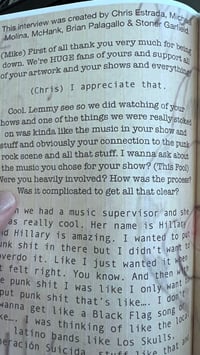 This interview was created by Chris Estrada, Michael
Molina, McHank, Brian Palagallo & Stoner Garfield.
(Mike) First of all thank you very much for being
down. We're HUGE fans of yours and support all
of your artwork and your shows and everything
(Chris) I appreciate that.
Cool. Lemmy see so we did watching of your
shows and one of the things we were really stoked
on was kinda like the music in your show and
stuff and obviously your connection to the punk
rock scene and all that stuff. I wanna ask about
the music you chose for your show? (This Fool)
Were you heavily involved? How was the process?
Was it complicated to get all that clear?
we had a music supervisor and she
as really cool. Her name is Hillary
d Hillary is amazing. I wanted to put
unk shit in there but I didn't want to
verdo it. Like I just wanted it when
t felt right. You know. And then
e punk shit I was like I only want
put punk shit that's like…. I don't
wanna get like a Black Flag song or
ke…. I was thinking of like the local
latino bands like Los Skulls.
peración Suicida stuff like that